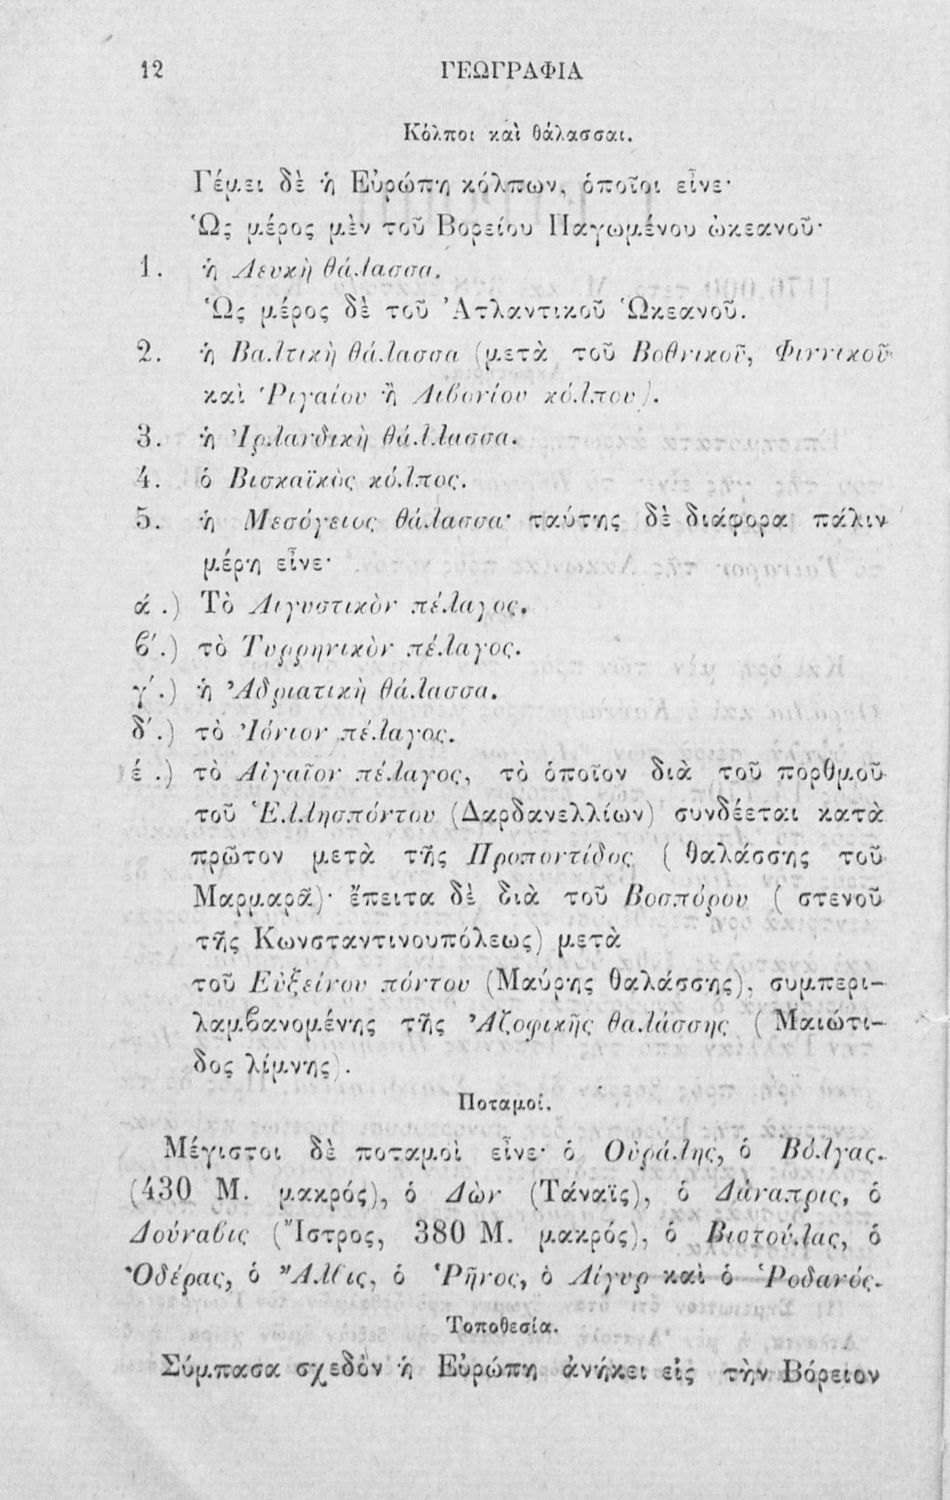 12 ΓΕΩΓΡΑΦΙΑ
Κόλποι καὶ θάλασσαι.
Γέμει δὲ ἡ Εὐρώπη κόλπων, ὁποῖοι εἶνε·
Ὡς μέρος μὲν τοῦ Βορείου Παγωμένου ὠκεανοῦ·
1. ἡ Λευκὴ θάλασσα.
Ὡς μέρος δὲ τοῦ Ἀτλαντικοῦ Ὠκεανοῦ.
2. ἡ Βαλτικὴ θάλασσα (μετὰ τοῦ Βοθνικοῦ, Φιννικοῦ
καὶ Ῥιγαίου ἢ Λιβονίου κόλπου).
3. ἡ Ἰρλανδικὴ θάλλασσα.
4. ὁ Βισκαϊκὸς κόλπος.
5. ἡ Μεσόγειος θάλασσα· ταύτης δὲ διάφορα πάλιν
μέρη εἶνε·
ά.) Τὸ Λιγυστικὸν πέλαγος.
ϐ΄.) τὸ Τυρρηνικὸν πέλαγος.
γ΄.) ἡ Ἀδριατικὴ θάλασσα.
δ΄.) τὸ Ἰόνιον πέλαγος.
έ.) τὸ Αἰγαῖον πέλαγος, τὸ ὁποῖον διὰ τοῦ πορθμοῦ
τοῦ Ἑλλησπόντου (Δαρδανελλίων) συνδέεται κατὰ
πρῶτον μετὰ τῆς Προποντίδος (θαλάσσης τοῦ
Μαρμαρᾶ)· ἔπειτα δὲ διὰ τοῦ Βοσπόρου (στενοῦ
τῆς Κωνσταντινουπόλεως) μετὰ
τοῦ Εὐξείνου πόντου (Μαύρης θαλάσσης), συμπερι-
λαμϐανομένης τῆς Ἀζοφικῆς θαλάσσης (Μαιώτι-
δος λίμνης).
Ποταμοί.
Μέγιστοι δὲ ποταμοὶ εἶνε· ὁ Οὐράλης, ὁ Βόλγας
(430 Μ. μακρός), ὁ Δὼν (Τάναϊς), ὁ Δάναπρις, ὁ
Δούναϐις (Ἴστρος, 380 Μ. μακρός), ὁ Βιστούλας, ὁ
Ὀδέρας, ὁ Ἄλϐις, ὁ Ῥῆνος, ὁ Λίγυρ καὶ ὁ Ῥοδανός.
Τοποθεσία.
Σύμπασα σχεδὸν ἡ Εὐρώπη ἀνήκει εἰς τὴν Βόρειον